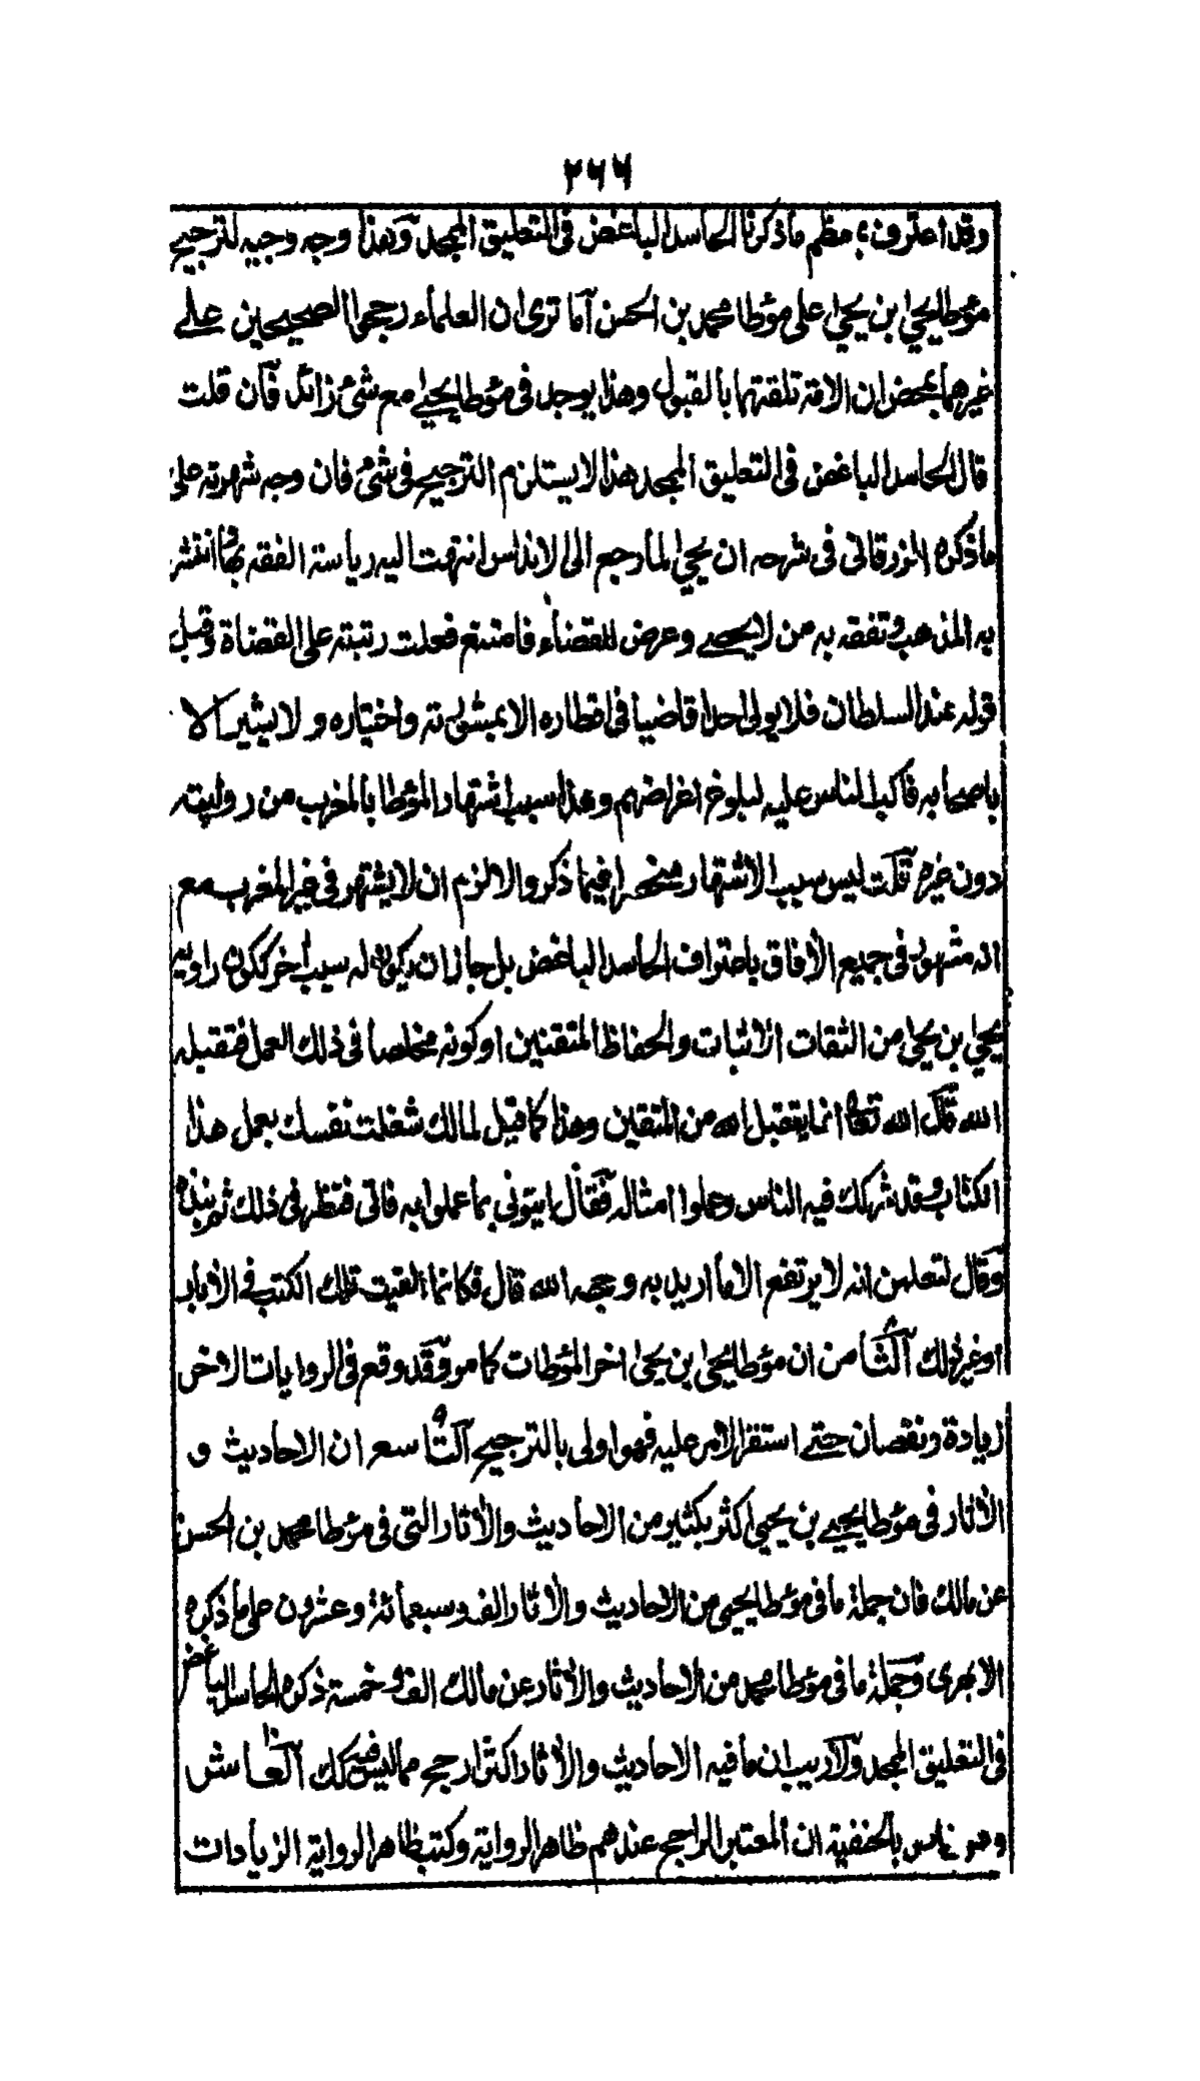 ٢٦٦
وقد اعترف بمعظم ما ذكرنا الحاسد الباغض فى التعليق الممجد وهذا وجه وجيه لترجيح
مؤطا يحيى ابن يحيى على مؤطا محمد بن الحسن آما ترى ان العلماء رجحوا الصحيحين على
غيرهما بمحض ان الامة تلقتهما بالقبول وهذا يوجد فى مؤطا يحيى مع شئ زائد فان قلت
قال الحاسد الباغض فى التعليق الممجد هذا لا يستلزم الترجيح فى شئ فان وجه شهرته على
ما ذكره الزرقانى فى شرحه ان يحيى لما رجع الى الاندلس انتهت اليه رياسة الفقه بها وانتشر
به المذهب وتفقه به من لا يحصى وعرض للقضاء فامتنع فعلت رتبته على القضاة وقبل
قوله عند السلطان فلا يولى احدا قاضيا فى اقطاره الا بمشورته واختياره ولا يشير الا
باصحابه فاكب الناس عليه لبلوغ اغراضهم وهذا سبب اشتهار المؤطا بالمغرب من روايته
دون غيره قلت ليس سبب الاشتهار منحصرا فيما ذكر والا لزم ان لا يشتهر فى غير المغرب مع
انه مشهور فى جميع الأفاق باعتراف الحاسد الباغض بل جاز ان يكون له سبب أخر ككون راويه
يحيى بن يحيى من الثقات الاثبات والحفاظ المتقنين او كونه مخلصا فى ذلك العمل فتقبله
الله قال الله تعالى انما يتقبل الله من المتقين وهذا كما قيل لمالك شغلت نفسك بعمل هذا
الكتاب وقد شركك فيه الناس وعملوا امثاله فقال ايتونى بما عملوا به فاتى فنظر فى ذلك ثم نبذه
وقال لتعلمن انه لا يرتفع الا ما اريد به وجه الله قال فكانما القيت تلك الكتب فى الأبار
او غير ذلك الثامن ان مؤطا يحيى بن يحيى اخر المؤطات كما مر وقد وقع فى الروايات الاخر
زيادة ونقصان حتى استقر الامر عليه فهو اولى بالترجيح التاسع ان الاحاديث و
الأثار فى مؤطا يحيى بن يحيى اكثر بكثير من الاحاديث والأثار التى فى مؤطا محمد بن الحسن
عن مالك فان جملة ما فى مؤطا يحيى من الاحاديث والأثار الف وسبعمائة وعشرون على ما ذكره
الابهرى وجملة ما فى مؤطا محمد من الاحاديث والأثار عن مالك الف وخمسة ذكره الحاسد الباغض
فى التعليق الممجد ولا ريب ان ما فيه الاحاديث والأثار اكثر ارجح مما ليس فيه كك العاشر
وهو خاص بالحنفية ان المعتبر الراجح عندهم ظاهر الرواية وكتب ظاهر الرواية الزيادات